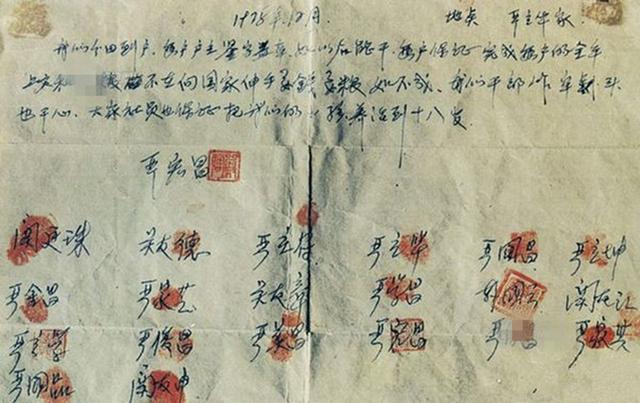 1978年12月. 地点 严立华家
我们分田到户，每户户主签字盖章，如以后能干，每户保证完成每户的全年
上交和 粮 不在向国家伸手要钱要粮，如不成，我们干部作牢杀头
也干心，大家社员也保证把我们的小孩养活到十八岁
严宏昌
关廷珠 关友德 严立符 严立华 严国昌 严立坤
严金昌 严家芝 关友章 严学昌 韩国云 关友江
严立学 严俊昌 严美昌 严宏昌 严 昌 严家其
严国品 关友申